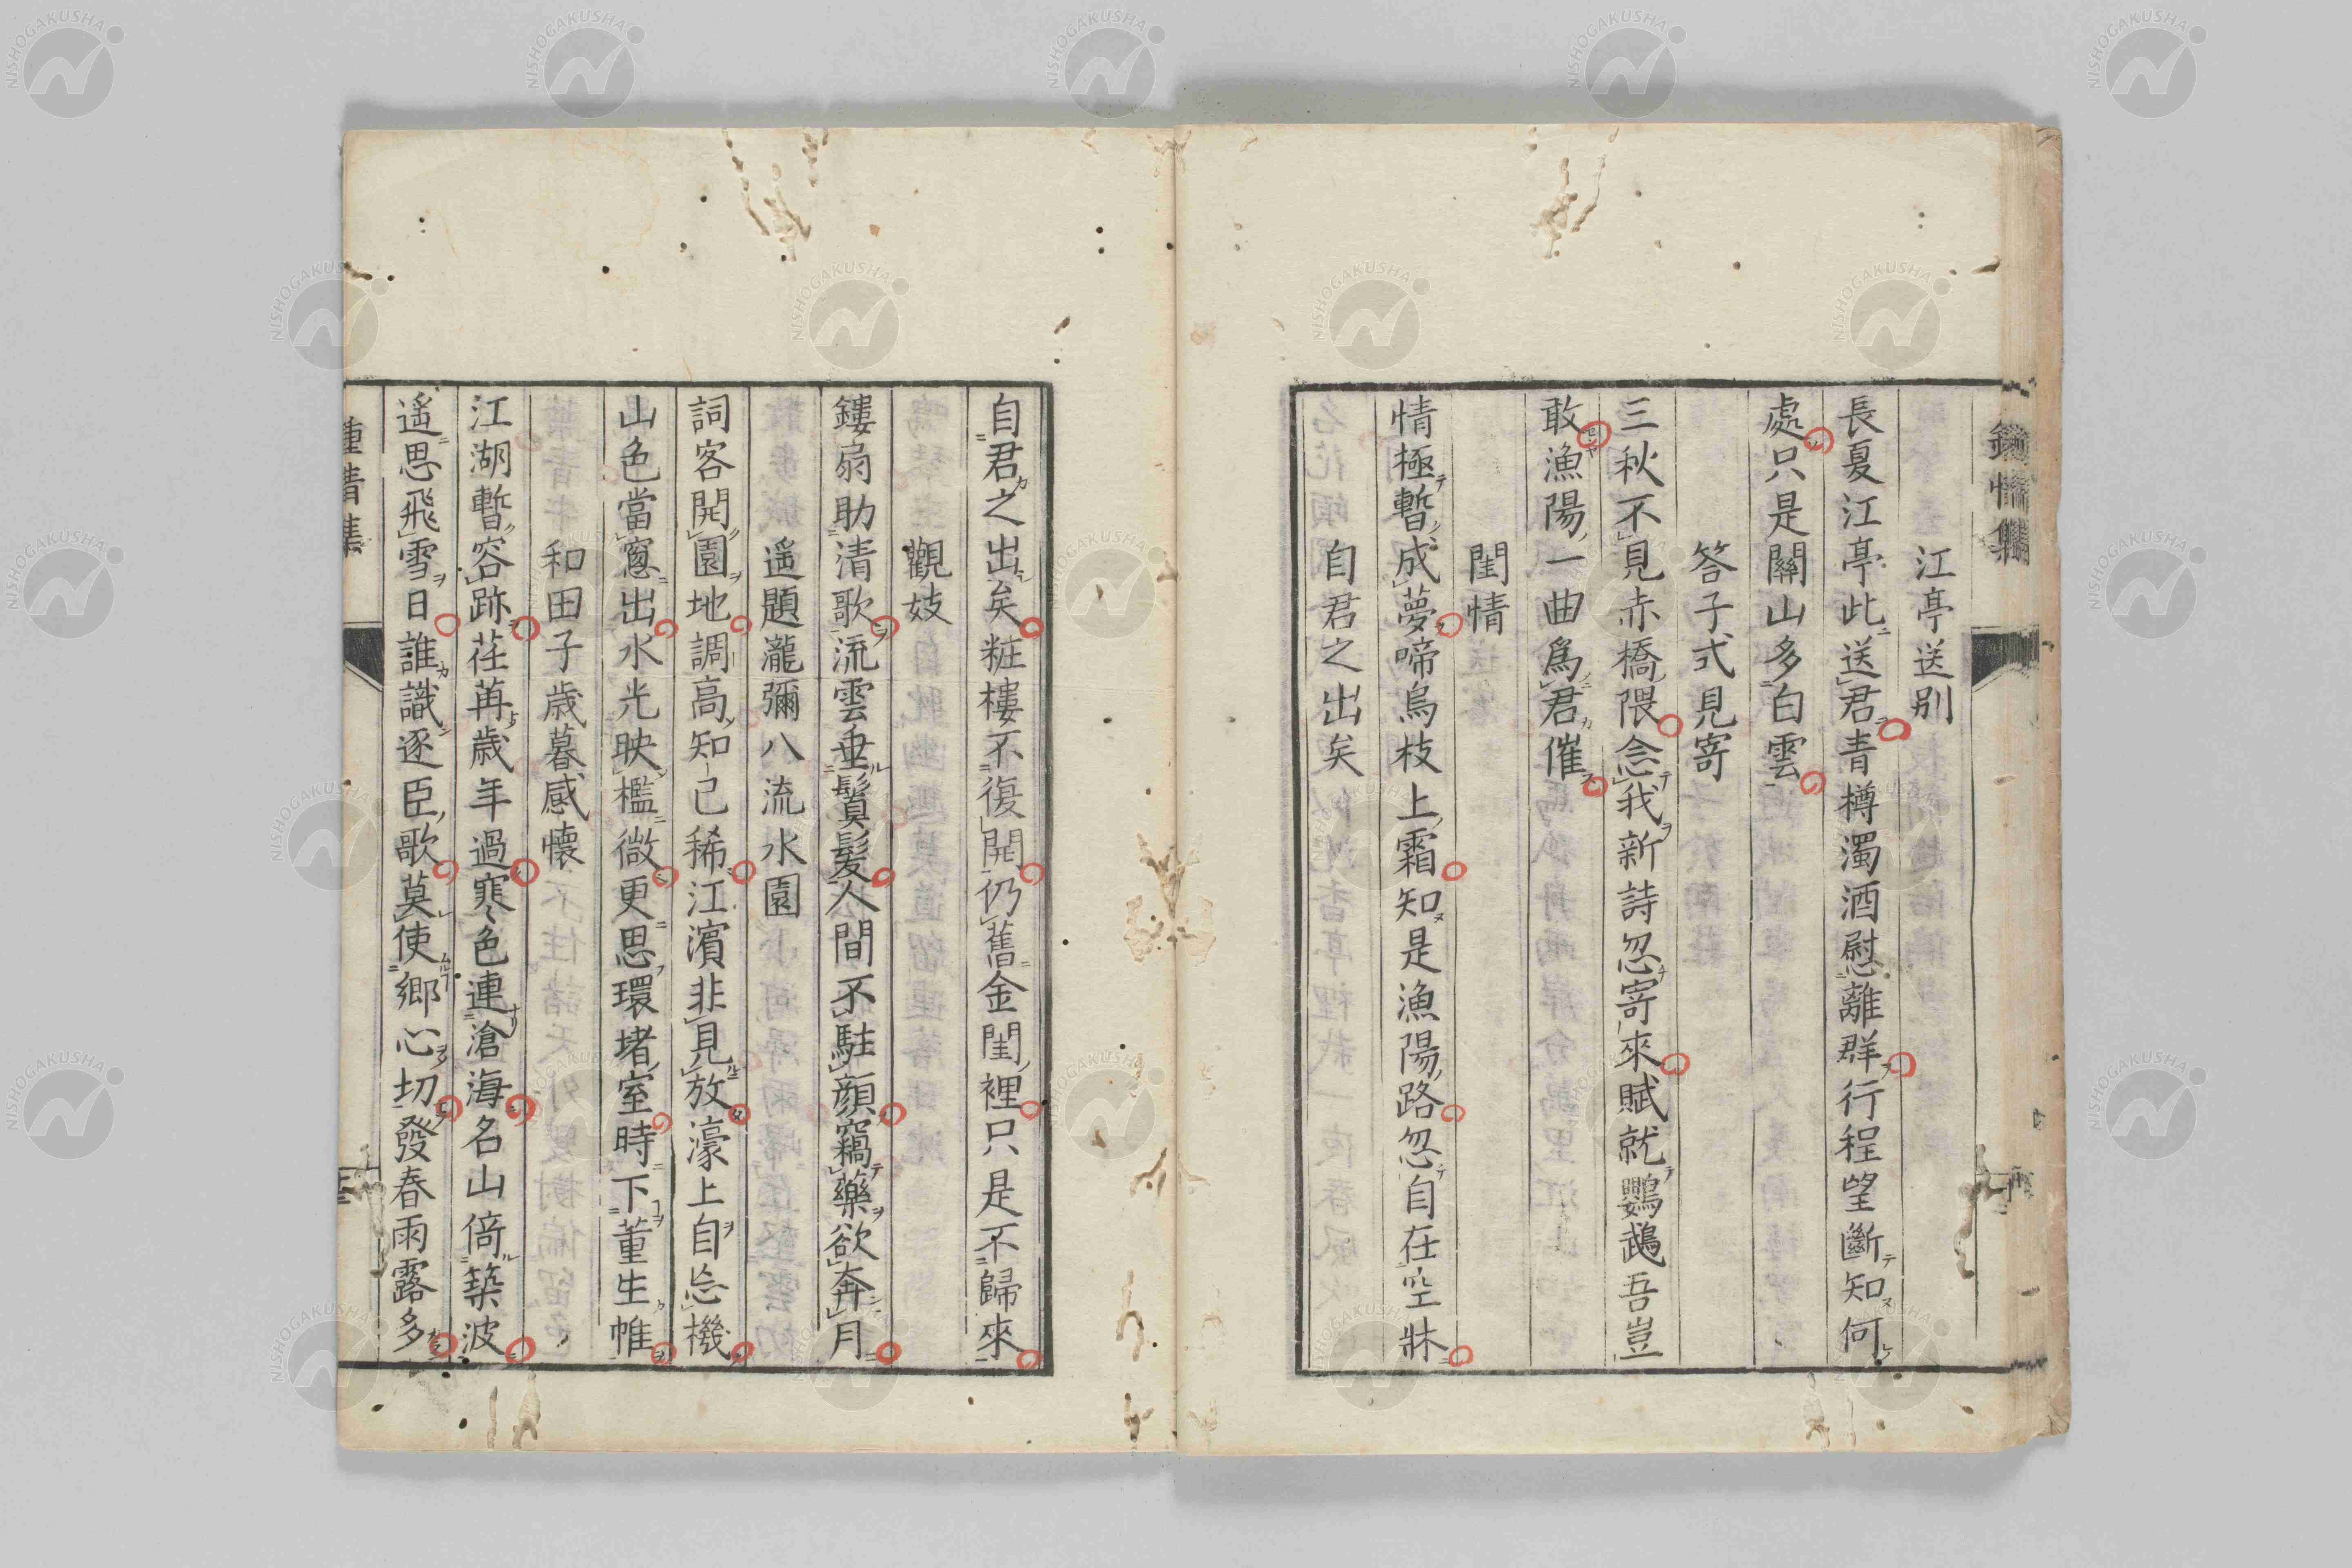 鍾情集
江亭送別
長夏江亭此送君青樽濁酒慰離群行程望斷知何
處只是關山多白雲
答子式見寄
三秋不見赤橋隈念我新詩忽寄來賦就鸚鵡吾豈
敢漁陽一曲爲君催
閨情
情極暫成夢啼烏枝上霜知是漁陽路忽自在空牀
自君之出矣
自君之出矣粧樓不復開仍舊金閨裡只是不歸來
觀妓
鏤扇助清歌流雲垂鬒髮人間不駐顔竊藥欲奔月
遥題瀧彌八流水園
詞客開園地調高知己稀江濱非見放濠上自忘機
山色當窻出水光映檻微更思環堵室時下董生帷
和田子歳暮感懷
江湖暫容跡荏苒歳年過寒色連滄海名山倚築波
遥思飛雪日誰識逐臣歌莫使鄉心切發春雨露多
鍾情集
NISHOGAKUSHA